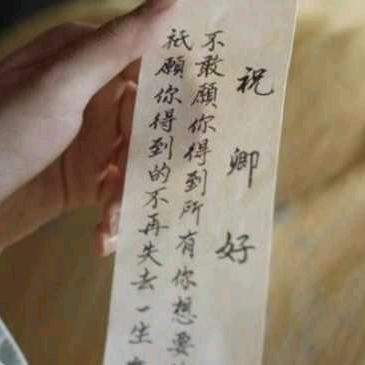 祝卿好
不敢願你得到所有你想要
祇願你得到的不再失去一生